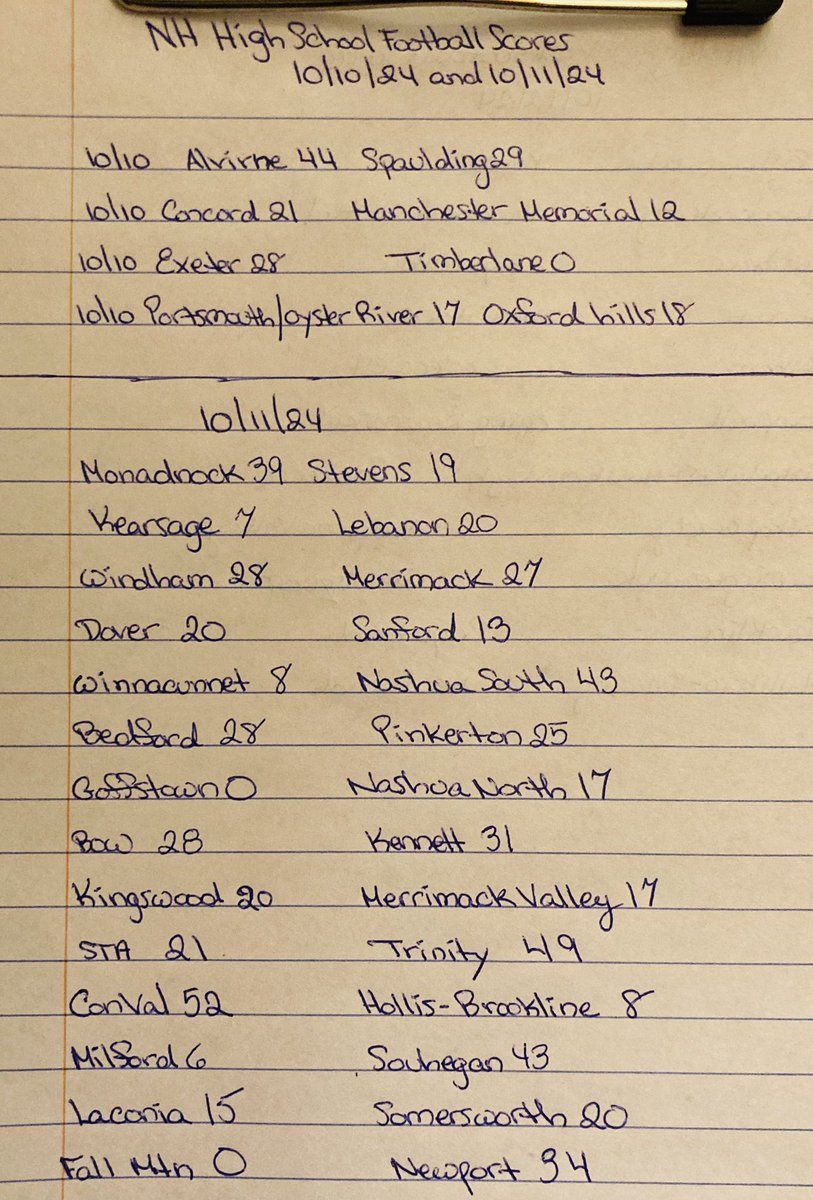 NH High School Football Scores
10/10/24 and 10/11/24
10/10 Alvirne 44 Spaulding 29
10/10 Concord 21 Manchester Memorial 12
10/10 Exeter 28 Timberlane 0
10/10 Portsmouth/Oyster River 17 Oxford hills 18
10/11/24
Monadnock 39 Stevens 19
Kearsage 7 Lebanon 20
Windham 28 Merrimack 27
Dover 20 Sanford 13
Winnacunnet 8 Nashua South 43
Bedford 28 Pinkerton 25
Goffstown 0 Nashua North 17
Bow 28 Kennett 31
Kingswood 20 Merrimack Valley 17
STA 21 Trinity 49
ConVal 52 Hollis-Brookline 8
Milford 6 Souhegan 43
Laconia 15 Somersworth 20
Fall Mtn 0 Newport 34